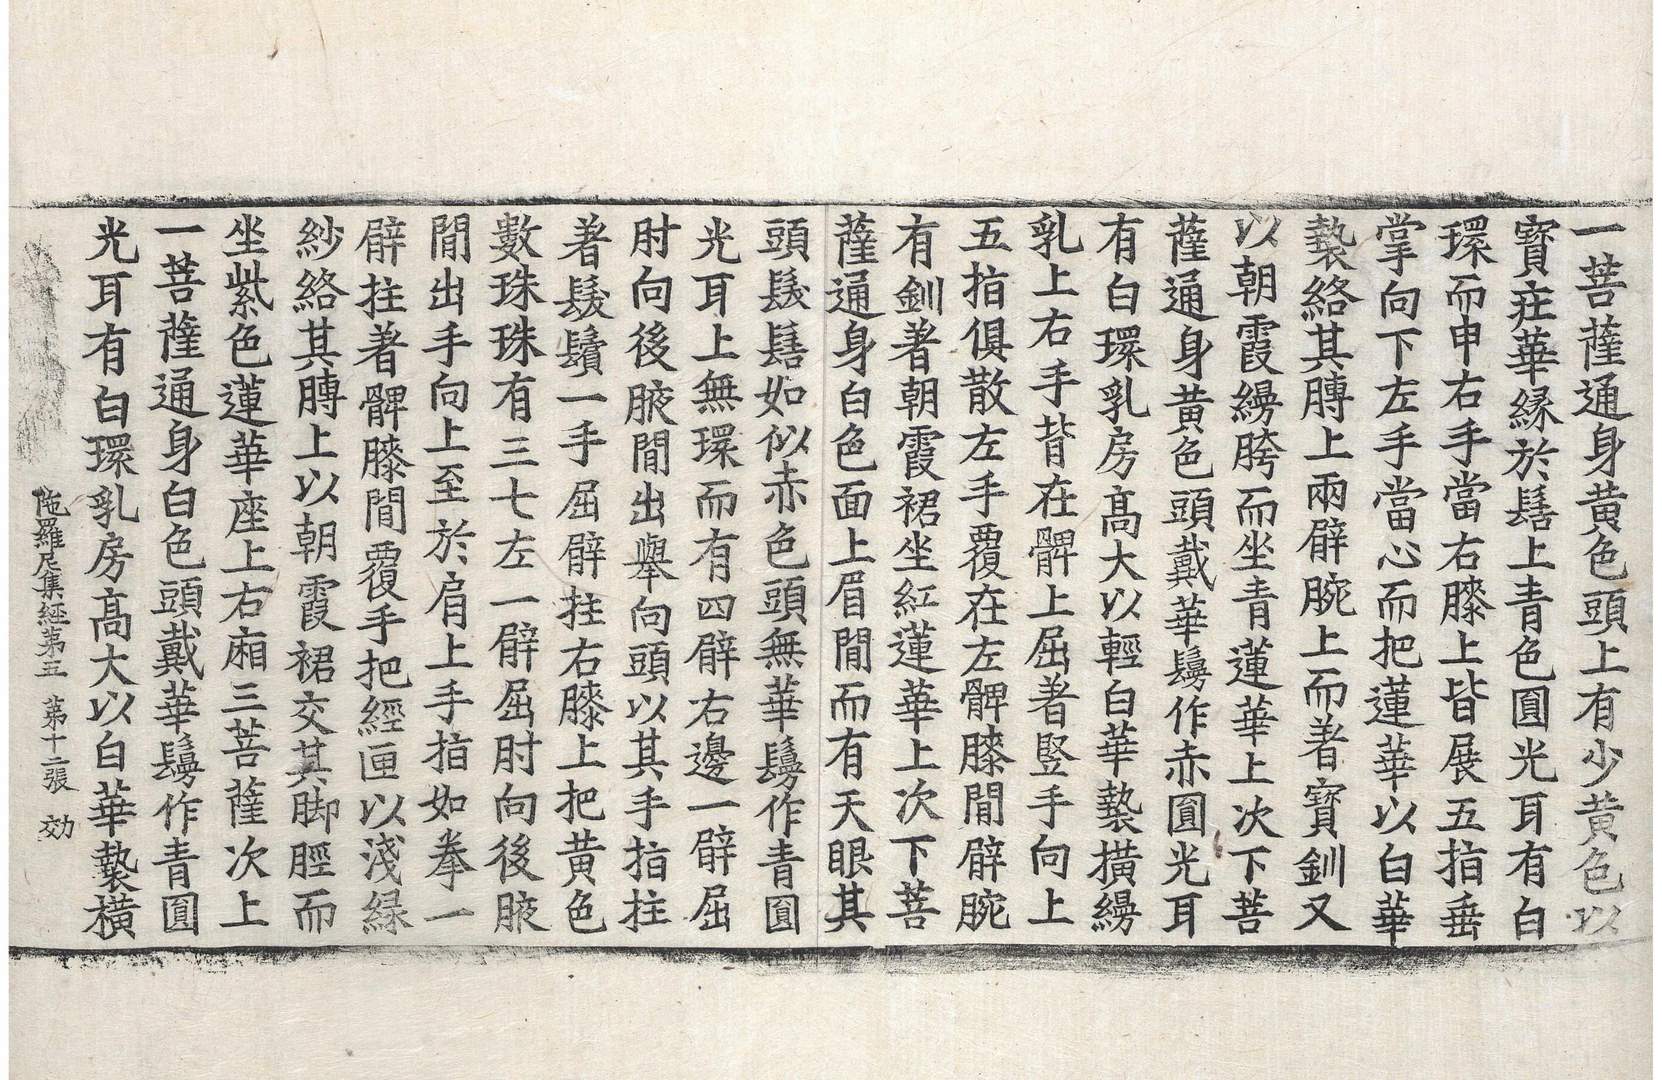 一菩薩通身黃色頭上有少黃色以
寶莊華緣於髻上青色圓光耳有白
環而申右手當右膝上皆展五指垂
掌向下左手當心而把蓮華以白華
褺絡其膞上兩臂腕上而著寶釧又
以朝霞縵胯而坐青蓮華上次下菩
薩通身黃色頭戴華鬘作赤圓光耳
有白環乳房高大以輕白華褺撗縵
乳上右手背在髀上屈著竪手向上
五指俱散左手覆在左髀膝間臂腕
有釧著朝霞裙坐紅蓮華上次下菩
薩通身白色面上眉間而有天眼其
頭髮髻如似赤色頭無華鬘作青圓
光耳上無環而有四臂右邊一臂屈
肘向後腋間出舉向頭以其手指拄
著髮鬢一手屈臂拄右膝上把黃色
數珠珠有三七左一臂屈肘向後腋
間出手向上至於肩上手指如拳一
臂拄著髀膝間覆手把經匣以淺綠
紗絡其膞上以朝霞裙交其脚脛而
坐紫色蓮華座上右廂三菩薩次上
一菩薩通身白色頭戴華鬘作青圓
光耳有白環乳房高大以白華褺橫
陁羅尼集經第五 第十二張 効